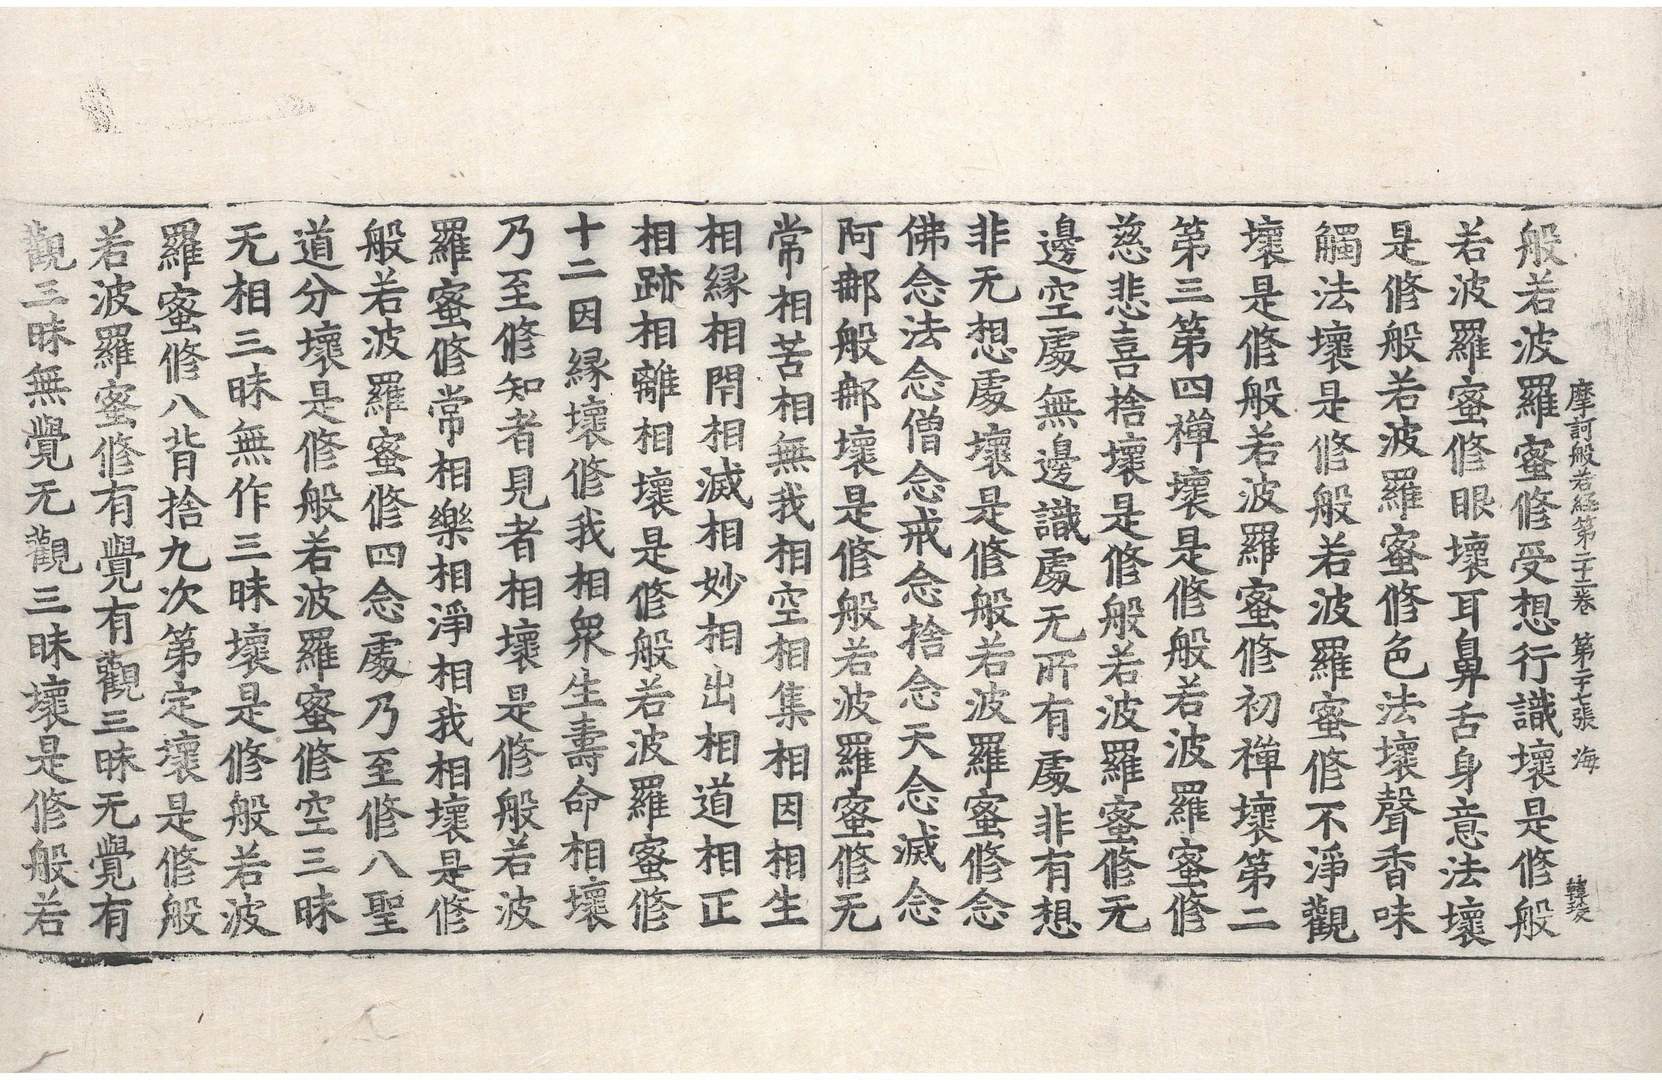 摩訶般若経第二十二卷 第二十七張 海
般若波羅蜜修受想行識壞是修般
若波羅蜜修眼壞耳鼻舌身意法壞
是修般若波羅蜜修色法壞聲香味
觸法壞是修般若波羅蜜修不淨觀
壞是修般若波羅蜜修初禪壞第二
第三第四禪壞是修般若波羅蜜修
慈悲喜捨壞是修般若波羅蜜修无
邊空處無邊識處无所有處非有想
非无想處壞是修般若波羅蜜修念
佛念法念僧念戒念捨念天念滅念
阿那般那壞是修般若波羅蜜修无
常相苦相無我相空相集相因相生
相縁相閇相滅相妙相出相道相正
相跡相離相壞是修般若波羅蜜修
十二因縁壞修我相衆生壽命相壞
乃至修知者見者相壞是修般若波
羅蜜修常相樂相淨相我相壞是修
般若波羅蜜修四念處乃至修八聖
道分壞是修般若波羅蜜修空三昧
无相三昧無作三昧壞是修般若波
羅蜜修八背捨九次第定壞是修般
若波羅蜜修有覺有觀三昧无覺有
觀三昧無覺无觀三昧壞是修般若